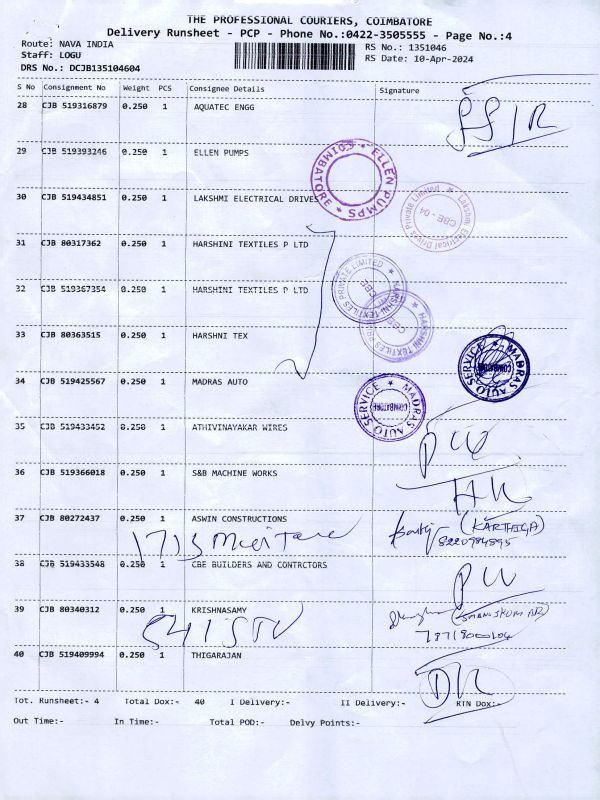 THE PROFESSIONAL COURIERS, COIMBATORE
Delivery Runsheet - PCP - Phone No.:0422-3505555 - Page No.:4
Route: NAVA INDIA
RS No.: 1351046
Staff: LOGU
RS Date: 10-Apr-2024
DRS No.: DCJB135104604
S No Consignment No Weight PCS Consignee Details Signature
28 CJB 519316879 0.250 1 AQUATEC ENGG
29 CJB 519393246 0.250 1 ELLEN PUMPS
ELLEN PUMPS ★ COIMBATORE ★
30 CJB 519434851 0.250 1 LAKSHMI ELECTRICAL DRIVES
Lakshmi Electrical Drives Private Limited ★ CBE - 04
31 CJB 80317362 0.250 1 HARSHINI TEXTILES P LTD
32 CJB 519367354 0.250 1 HARSHINI TEXTILES P LTD
HARSHNI TEXTILES PRIVATE LIMITED ★ CBE
33 CJB 80363515 0.250 1 HARSHNI TEX
34 CJB 519425567 0.250 1 MADRAS AUTO
MADRAS AUTO SERVICE ★ COIMBATORE
MADRAS AUTO SERVICE ★ COIMBATORE
35 CJB 519433452 0.250 1 ATHIVINAYAKAR WIRES
36 CJB 519366018 0.250 1 S&B MACHINE WORKS
37 CJB 80272437 0.250 1 ASWIN CONSTRUCTIONS
(KARTHIGA)
8220984895
38 CJB 519433548 0.250 1 CBE BUILDERS AND CONTRCTORS
39 CJB 80340312 0.250 1 KRISHNASAMY
40 CJB 519409994 0.250 1 THIGARAJAN
Tot. Runsheet:- 4 Total Dox:- 40 I Delivery:- II Delivery:- RTN Dox:-
Out Time:- In Time:- Total POD:- Delvy Points:-